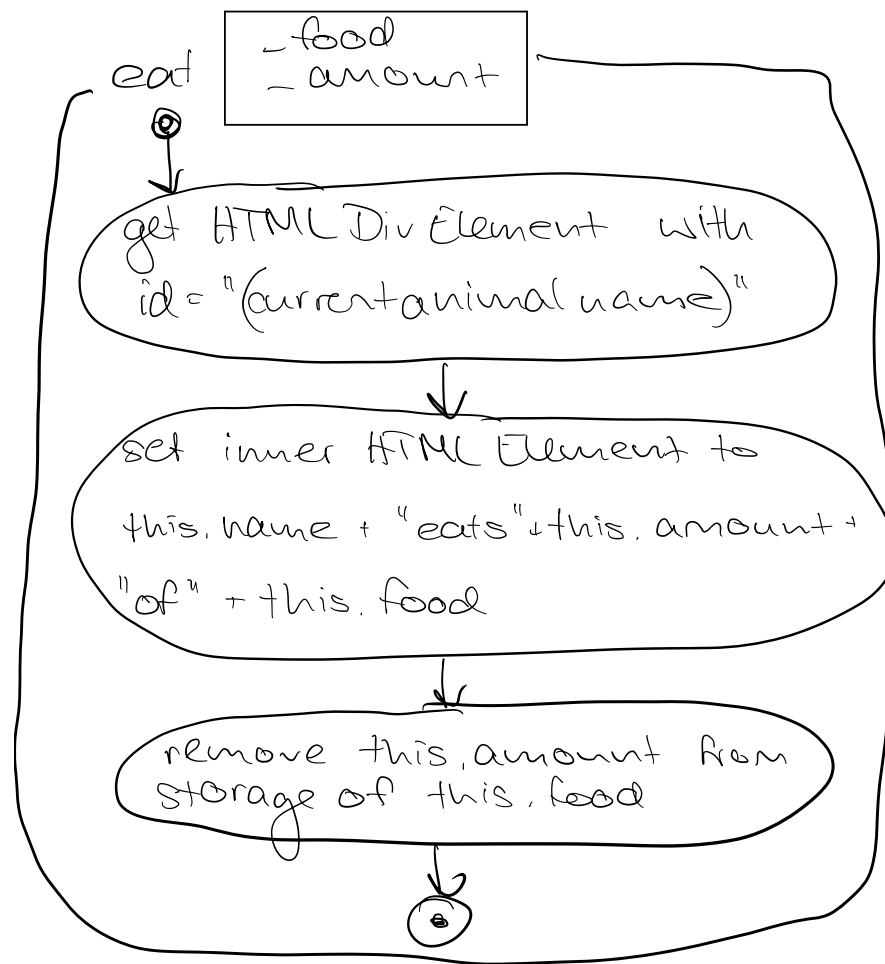 eat
_food
_amount
get HTMLDivElement with
id="(current animal name)"
set inner HTMLElement to
this.name + "eats"+this.amount+
"of" + this.food
remove this.amount from
storage of this.food